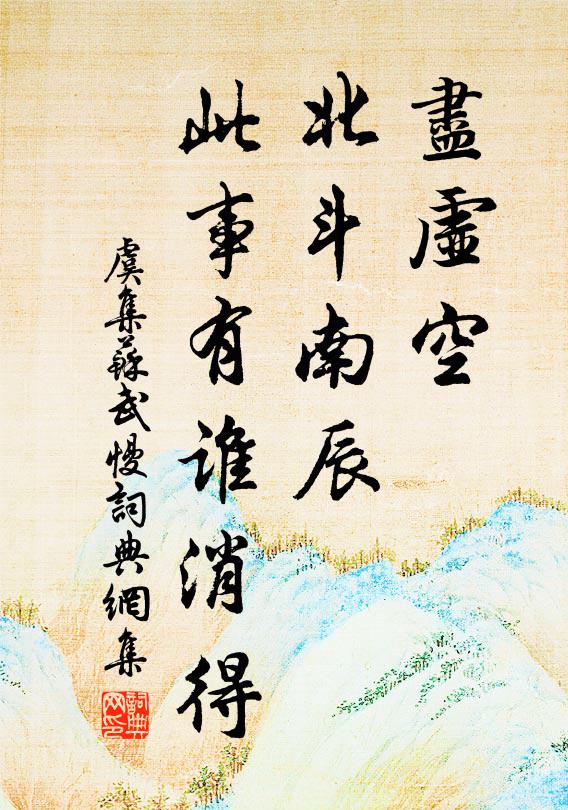 盡虛空
北斗南辰
此事有誰消得
虞集蘇武慢詞典網集
詞典網印